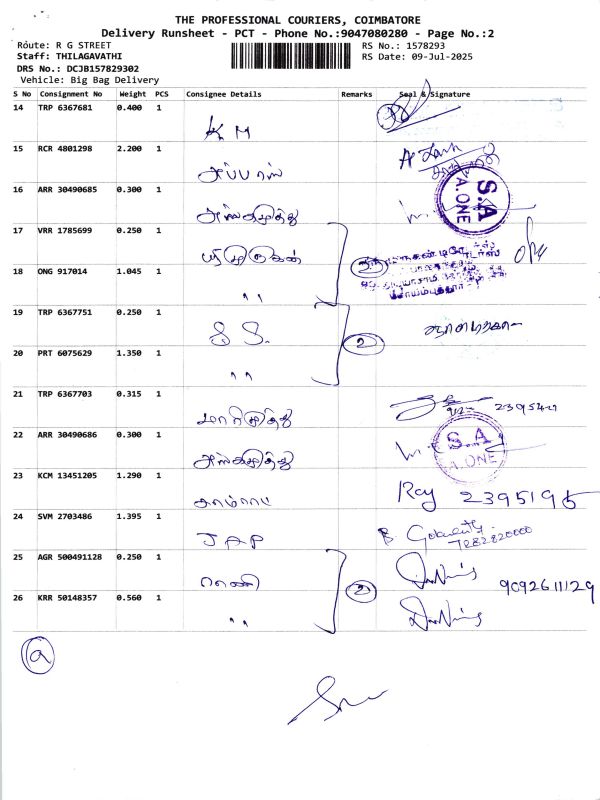 THE PROFESSIONAL COURIERS, COIMBATORE
Delivery Runsheet - PCT - Phone No.:9047080280 - Page No.:2
Route: R G STREET
RS No.: 1578293
Staff: THILAGAVATHI
RS Date: 09-Jul-2025
DRS No.: DCJB157829302
Vehicle: Big Bag Delivery
S No Consignment No Weight PCS Consignee Details Remarks Seal & Signature
14 TRP 6367681 0.400 1
K M
15 RCR 4801298 2.200 1
அப்பாஸ்
16 ARR 30490685 0.300 1
S.A
A.ONE
17 VRR 1785699 0.250 1
18 ONG 917014 1.045 1
" "
19 TRP 6367751 0.250 1
S S.
20 PRT 6075629 1.350 1
2
" "
21 TRP 6367703 0.315 1
மாரிமுத்து
22 ARR 30490686 0.300 1
S.A
A.ONE
23 KCM 13451205 1.290 1
Ray 2395195
24 SVM 2703486 1.395 1
JAP
25 AGR 500491128 0.250 1
9092611129
26 KRR 50148357 0.560 1
2
" "
a